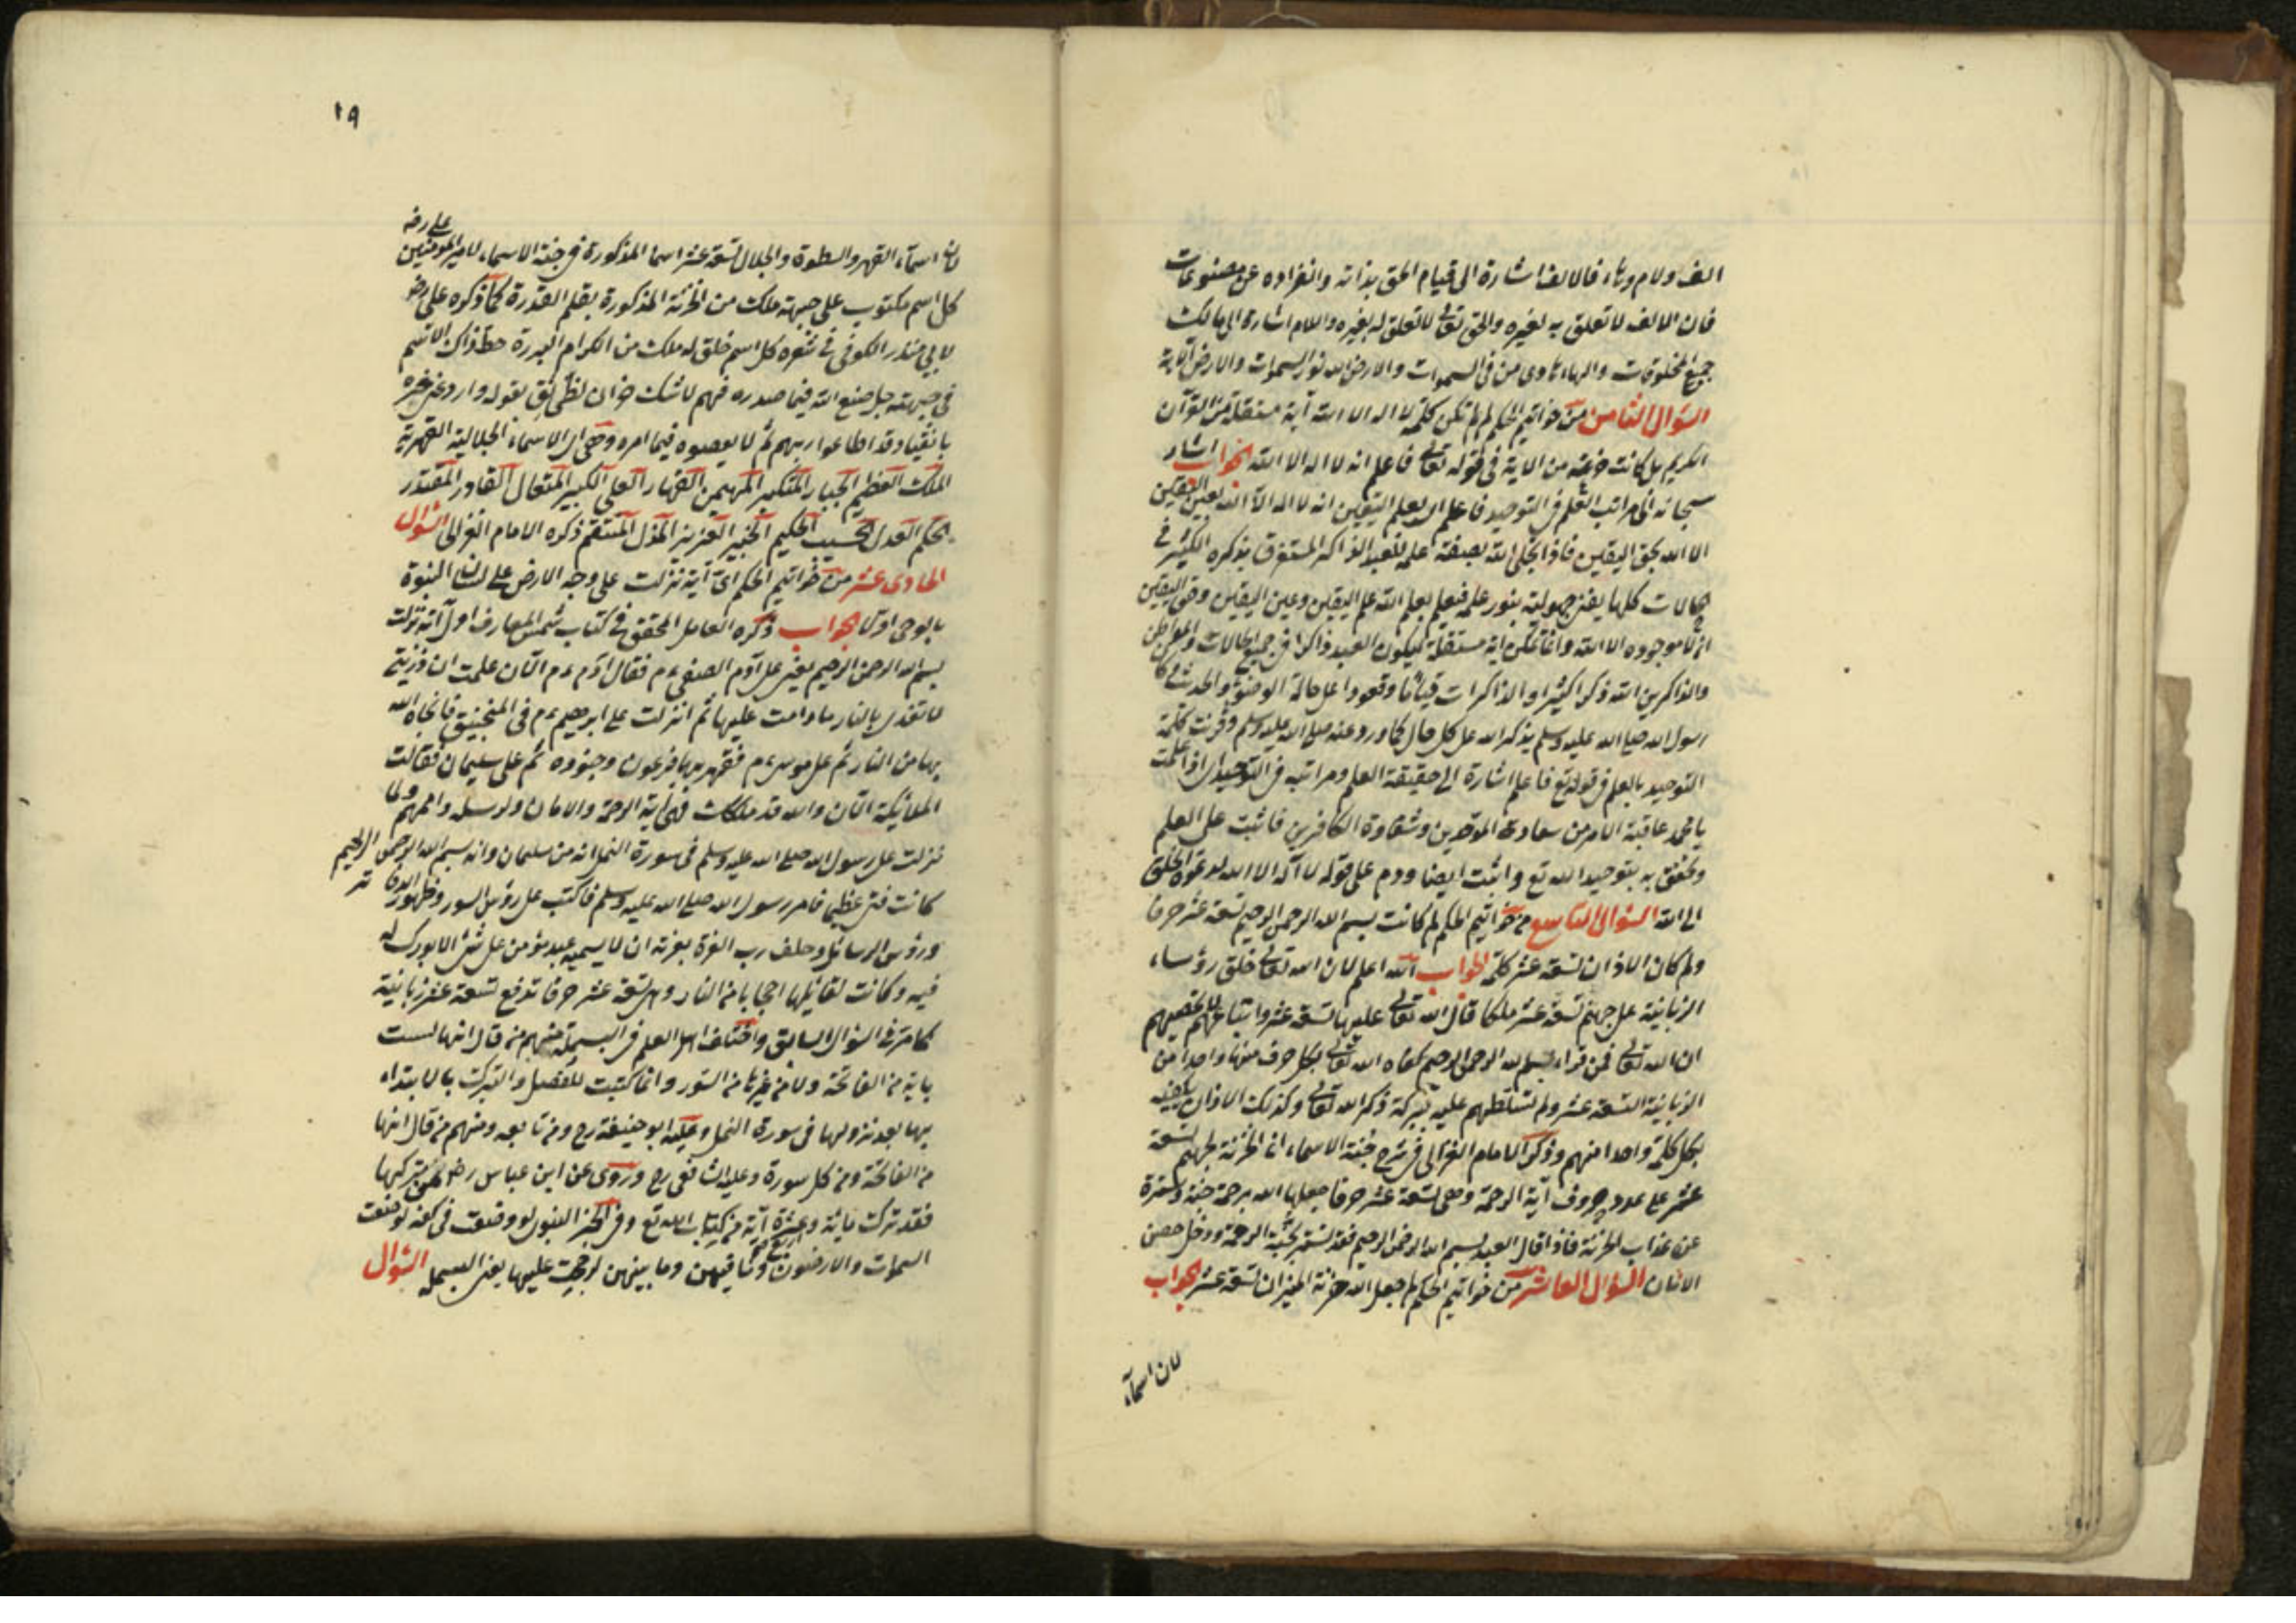 الف ولام وهاء فالالف اشارة الى قيام الحق بذاته وانفراده عن مصنوعات
فان الالف لا تعلق به لغيره والحق تعالى لا تعلق له بغيره واللام اشارة الى مالك
جميع المخلوقات والهاء هادى من فى السموات والارض الله نور السموات والارض الآية
السؤال الثامن من خواتيم الحكم لم لم تكن كلمة لا اله الا الله آية مستقلة من القرآن
الكريم بل كانت من الاية فى قوله تعالى فاعلم انه لا اله الا الله الجواب اشار
سبحانه الى مراتب العلم فى التوحيد فاعلم اى بعلم اليقين انه لا اله الا الله بعين اليقين
الا الله بحق اليقين فاذا تجلى الله بصفة علمه للعبد الذاكر المستغرق بذكره الكثير فى
حالات كلها يفنى جهوليته بنور علمه فيعلم بعلم الله علم اليقين وعين اليقين وحق اليقين
ان لا موجوده الا الله وانما لم تكن اية مستقلة ليكون العبد ذاكرا فى جميع الحالات والمواطن
والذاكرين الله ذكرا كثيرا والذاكرات قياما وقعودا على حالة الوضوء والحدث كما
رسول الله صلى الله عليه وسلم يذكر الله على كل حال كما ورد عنه صلى الله عليه وسلم وقرنت كلمة
التوحيد بالعلم فى قوله تع فاعلم اشارة الى حقيقة العلم ومراتبه فى التوحيد اى اذا علمت
يا محمد عاقبة الامر من سعادة الموحدين وشقاوة الكافرين فاثبت على العلم
وتحقق به بتوحيد الله تع واثبت ايضا ودم على قوله لا اله الا الله لدعوة الخلق
الى الله السؤال التاسع من خواتيم الحكم لم كانت بسم الله الرحمن الرحيم تسعة عشر حرفا
ولم كان الاذان تسعة عشر كلمة الجواب الله اعلم لان الله تعالى خلق رؤساء
الزبانية على جهنم تسعة عشر ملكا قال الله تعالى عليها تسعة عشر واتباعهم لا يحصيهم
الا الله تعالى فمن قراء بسم الله الرحمن الرحيم كفاه الله تعالى بكل حرف منها واحدا من
الزبانية التسعة عشر ولم تسلطهم عليه ببركة ذكر الله تعالى وكذلك الاذان يكفيه
بكل كلمة واحدا منهم وذكر الامام الغزالى فى شرح جنة الاسماء ان الخزنة لجهنم تسعة
عشر على عدد حروف آية الرحمة وهى تسعة عشر حرفا جعلها الله برحمته جنة وسترة
عن عذاب الخزنة فاذا قال العبد بسم الله الرحمن الرحيم فقد تستر بجنة الرحمة ودخل حصن
الامان السؤال العاشر من خواتيم الحكم لم جعل الله خزنة الميزان تسعة عشر الجواب
لان اسمآء
١٩
على رضه
لان اسمآء القهر والسطوة والجلال تسعة عشر اسما المذكورة فى جنة الاسماء لامير المؤمنين
كل اسم مكتوب على جبهة ملك من الخزنة المذكورة بقلم القدرة كما ذكره على رض
لابى منذر الكوفى فى شعره كل اسم خلق له ملك من الكرام البررة حط ذاك الاسم
فى جبهته جل صنع الله فيما صدره فهم لا شك خزان لظى بقوله
بانقياد قد اطاعوا ربهم ثم لا يعصوه فيما امره وهى اى الاسماء الجلالية القهرية
الملك العظيم الجبار المتكبر المهيمن القهار العلى الكبير المتعال القادر المقتدر
الحكم العدل الحسيب الحكيم الخبير العزيز المذل المنتقم ذكره الامام الغزالى السؤال
الحادى عشر من خواتيم الحكم اى آية نزلت على وجه الارض على لسان النبوة
بالوحى اولا الجواب ذكره العامل المحقق فى كتاب شمس المعارف اول آية نزلت
بسم الله الرحمن الرحيم يعنى على آدم الصفى ء م فقال آدم ء م الآن علمت ان ذريتى
لا تعذب بالنار ما دامت عليها ثم انزلت على ابرهيم ء م فى المنجنيق فانجاه الله
بها من النار ثم على موسى ء م فقهر بها فرعون وجنوده ثم على سليمان فقالت
الملائيكة الآن والله قد ملكت فهى آية الرحمة والامان ولرسله واممهم ولما
نزلت على رسول الله صلى الله عليه وسلم فى سورة النمل انه من سليمان وانه بسم الله الرحمن الرحيم
كانت فتح عظيما فامر رسول الله صلى الله عليه وسلم فاكتب على رؤس السور وظهور الدفاتر
ورؤس الرسائل وحلف رب العزة بعزته ان لا يسميه عبد مؤمن على شئ الا بورك له
فيه وكانت لقائلها حجابا من النار وهى تسعة عشر حرفا تدفع تسعة عشر زبانية
كما مر فى السؤال السابق واختلف اهل العلم فى البسملة منهم من قال انها ليست
باية من الفاتحة ولا من غيرها من السور وانما كتبت للفصل والتبرك بالابتداء
بها بعد نزولها فى سورة النمل وعليه ابو حنيفة رح ومن تابعه ومنهم من قال انها
من الفاتحة ومن كل سورة وعليه الشافعى رح وروى عن ابن عباس رض من تركها
فقد ترك مائة وعشرة آية من كتاب الله تع وفى الخبر النبوى لو وضعت فى كفة لو وضعت
السموات والارضون وما فيهن وما بينهن لرجحت عليها يعنى البسملة السؤال